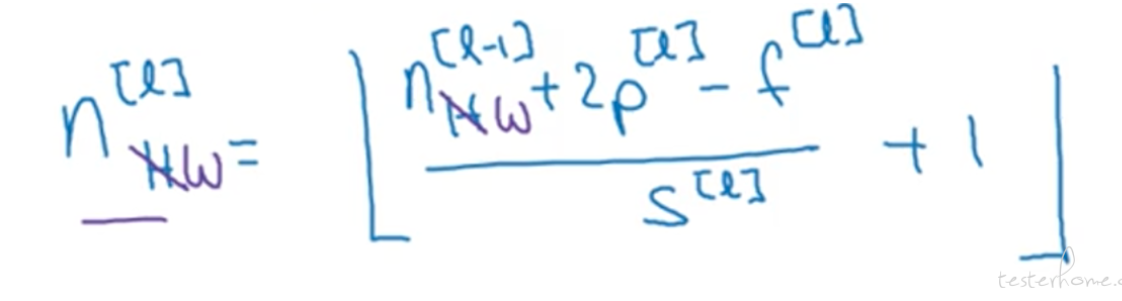 n^{[l]}_{W} = ⌊ \frac{n^{[l-1]}_{W} + 2p^{[l]} - f^{[l]}}{s^{[l]}} + 1 ⌋
testerhome.c